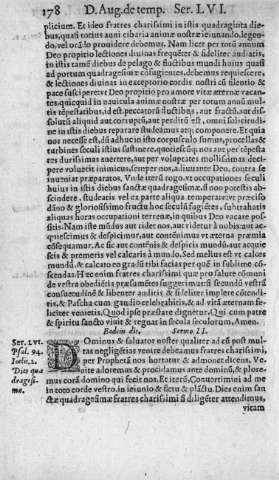 178 D. Aug. de temp. Ser. LVI.
plicium. Et ideo fratres charissimi in istis quadraginta die
bus, quasi totius anni cibaria animæ nostræ ieiunando, legen
do, vel orãdo providere debemus. Nam licet per totũ annum
Deo propitio lectiones divinas frequẽter & fideliter audiatis,
in istis tamẽ diebus de pelago & fluctibus mundi huius quasi
ad portum quadragesimæ cõfugientes, debemus requiescere,
& lectiones divinas in receptorio cordis nostri cũ silentio &
pace suscipere: ut Deo propitio pro amore vitæ æternæ vacan
tes, quicquid in navicula animæ nostræ per totum annũ mul
tis tẽpestatibus, id est, peccatorũ fluctibus, aut fractũ, aut dis
solutũ aliquid aut corruptũ, aut perditũ est, omni solicitudi-
ne in istis diebus reparare studeamus atq; componere. Et quia
nos necesse est, dũ adhuc in isto corpusculo sumus, procellas &
turbines sæculi istius sustinere: quotiescũq; nos aut per tẽpesta
res durissimas avertere, aut per voluptates mollissimas deci
pere voluerit inimicus, semper nos, adiuvante Deo, contra se
inveniat præparatos. Vnde iterũ rogo, ut occupationes sæculi
huius in istis diebus sanctæ quadragesimæ, si non potestis ab-
scindere, studeatis vel ex parte aliqua temperare: ut præciso
dãnoso & gloriosissimo fructu hoc sæculũ fugiẽtes, subtrahatis
aliquas horas occupationi terrenæ, in quibus Deo vacare pos
sitis. Nam iste mũdus aut ridet nos, aut ridetur à nobis: aut ac
quiescimus & despicimur, aut contẽnimus ut æterna præmia
cõsequamur. Ac sic aut contẽnis & despicis mundũ, aut acquie
scis & premeris vel calcaris à mundo. Sed melius est ut calces
mundũ, & calcato eo gradũ tibi facias per quẽ in sublime cõ-
scendas. Hæc enim fratres charissimi quæ pro salute cõmuni
de vestra obediẽtia præsumẽtes suggerimus: si secundũ vestrã
consuetudinẽ & libenter auditis, & fideliter implere cõtendi-
tis, & Pascha cum gaudio celebrabitis, & ad vitã æternam fe-
liciter venietis. Quod ipse præstare dignetur, Qui cum patre
& spiritu sancto vivit & regnat in sæcula sæculorum. Amen.
Eodem die, Sermo II.
Ser. LVI.
Psal. 94.
Ioelis, 2.
Dies qua
dragesi-
mæ.
DOminus & salvator noster qualiter ad eũ post mul
tas negligẽtias venire debeamus fratres charissimi,
per Prophetã nos hortatur & admonet dicens. Ve
nite adoremus & procidamus ante dominũ, & plore-
mus corã domino qui fecit nos. Et iterũ, Convertimini ad me
in toto corde vestro, in ieiunio & fletu & plãctu. Dies enim san
ctæ quadragesimæ fratres charissimi si diligẽter attendimus,
vitam